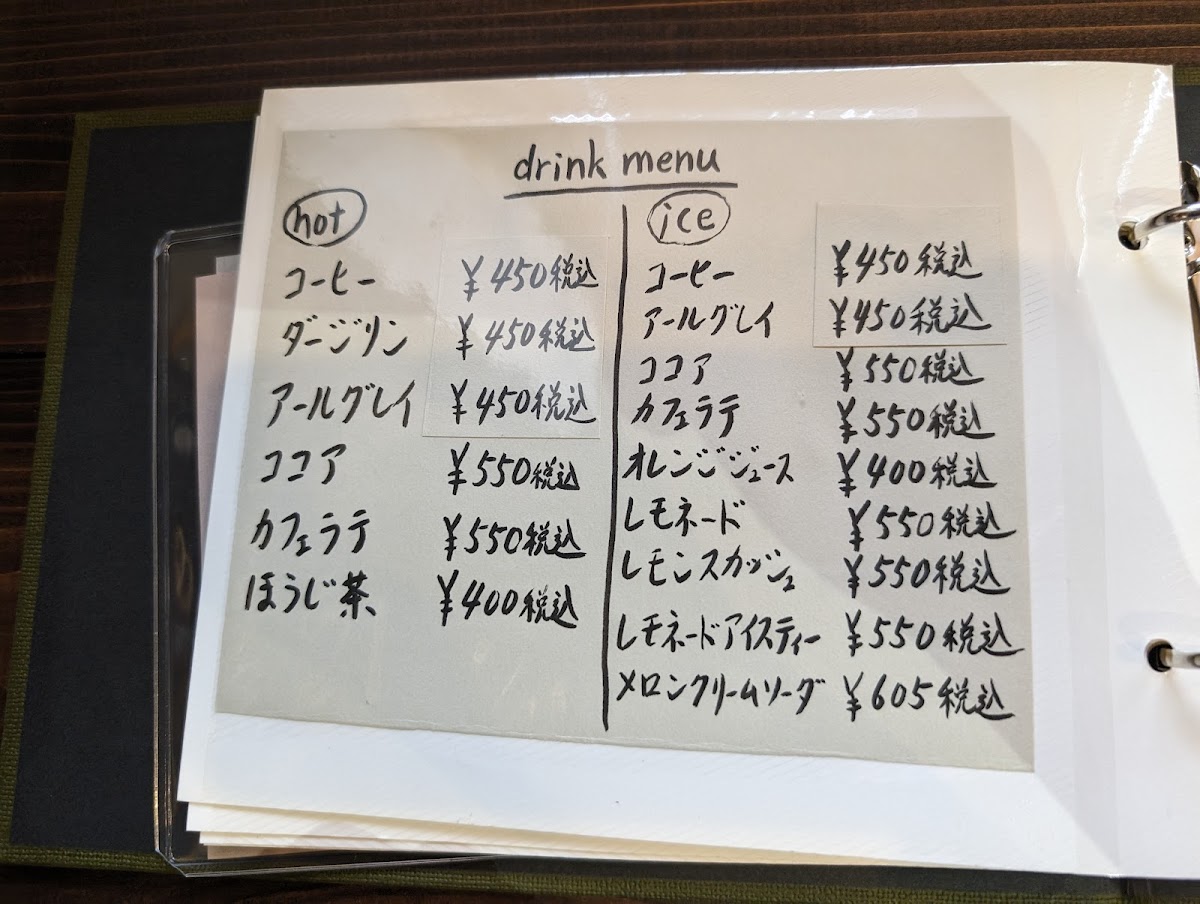 drink menu
hot
コーヒー ¥450税込
ダージリン ¥450税込
アールグレイ ¥450税込
ココア ¥550税込
カフェラテ ¥550税込
ほうじ茶 ¥400税込
ice
コーヒー ¥450税込
アールグレイ ¥450税込
ココア ¥550税込
カフェラテ ¥550税込
オレンジジュース ¥400税込
レモネード ¥550税込
レモンスカッシュ ¥550税込
レモネードアイスティー ¥550税込
メロンクリームソーダ ¥605税込